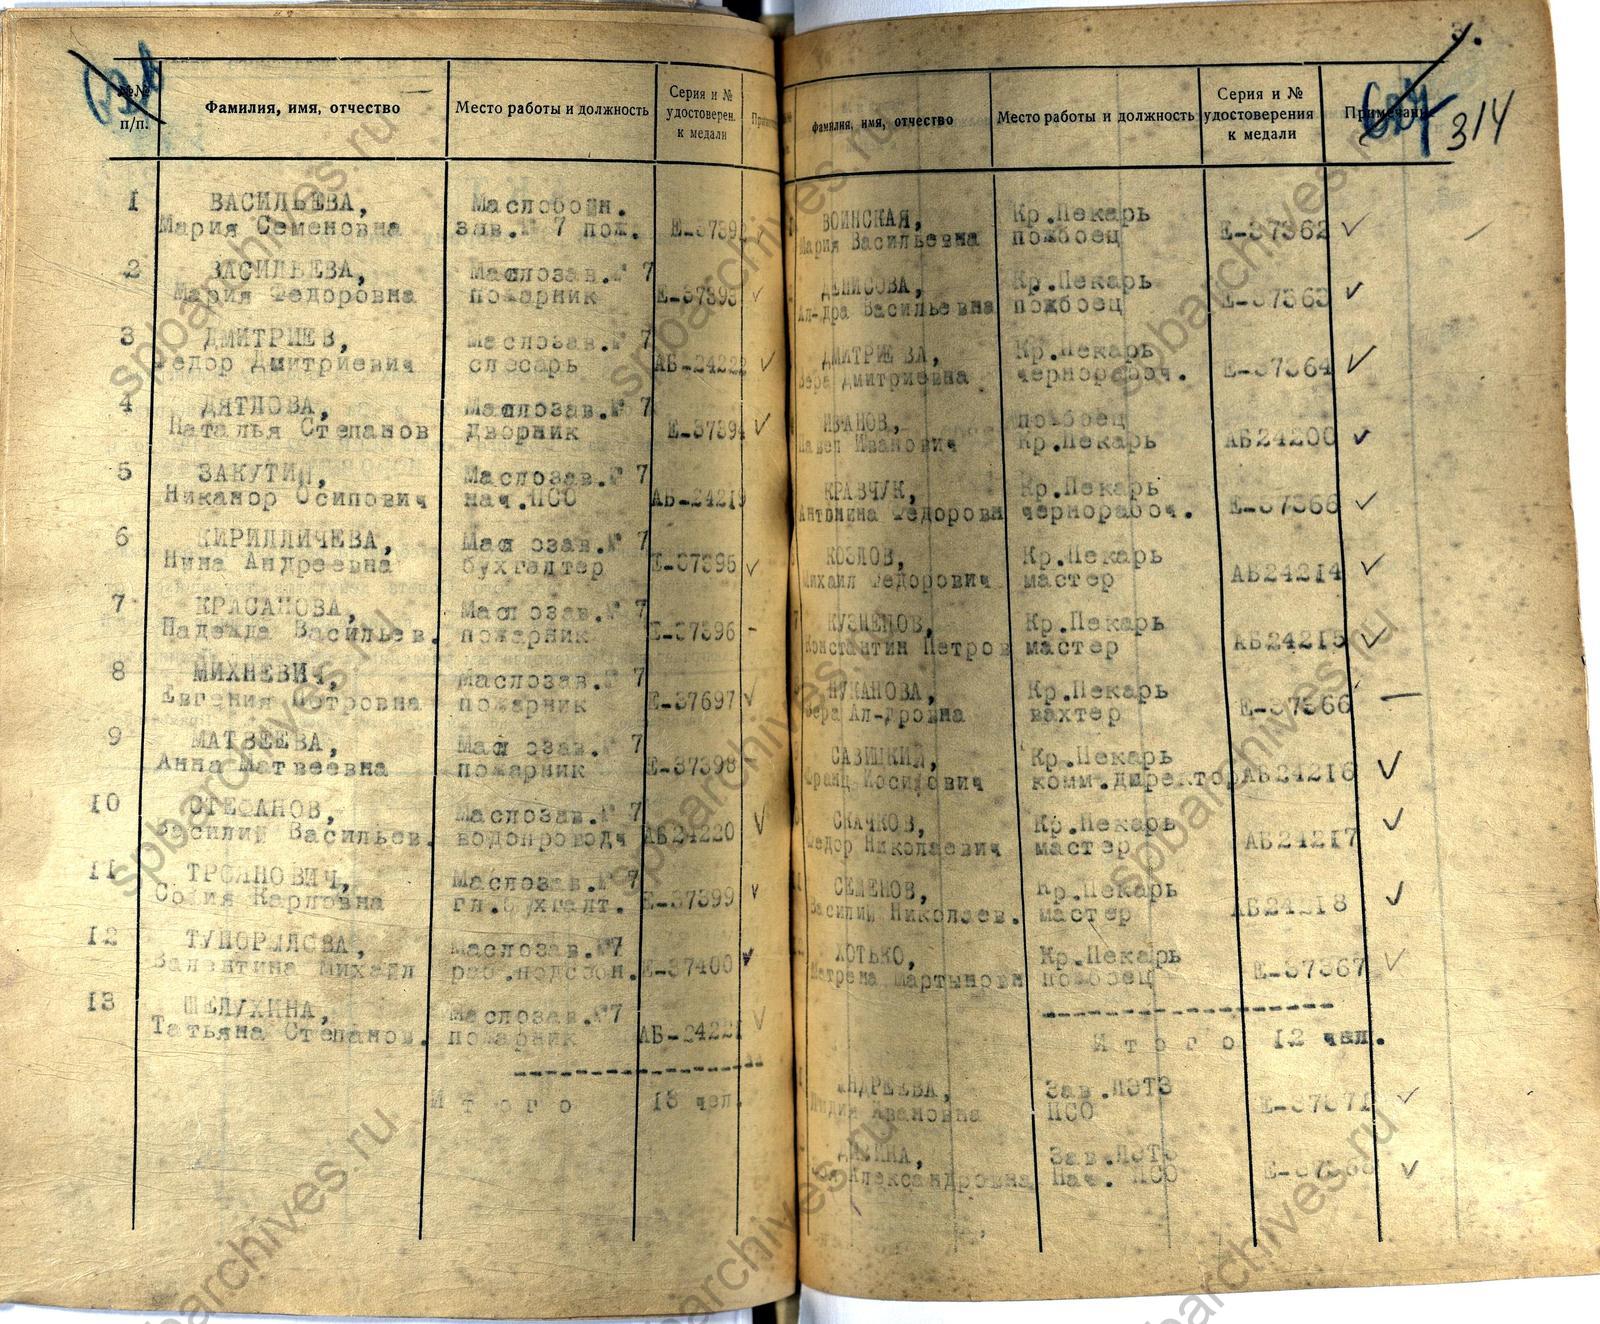 №№ п/п.
Фамилия, имя, отчество
Место работы и должность
Серия и № удостоверен. к медали
1 ВАСИЛЬЕВА, Маслобойн.
Мария Семеновна зав.№ 7 пож. Е-3739
2 ВАСИЛЬЕВА, Маслозав.№ 7
Мария Федоровна пожарник Е-37393
3 ДМИТРИЕВ, Маслозав.№ 7
Федор Дмитриевич слесарь АБ-24222
4 ДЯТЛОВА, Маслозав.№ 7
Наталья Степанов дворник Е-37394
5 ЗАКУТИН, Маслозав.№ 7
Никанор Осипович нач.ПСО АБ-24219
6 КИРИЛЛИЧЕВА, Масл озав.№ 7
Нина Андреевна бухгалтер Е-37395
7 КРАСАНОВА, Масл озав.№ 7
Надежда Васильев. пожарник Е-37396 -
8 МИХНЕВИЧ, Маслозав.№ 7
Евгения Петровна пожарник Е-37697
9 МАТВЕЕВА, Масл озав.№ 7
Анна Матвеевна пожарник Е-37398
10 СТЕФАНОВ, Маслозав.№ 7
Василий Васильев. водопроводч АБ24220
11 ТРОЯНОВИЧ, Маслозав.№ 7
София Карловна гл.бухгалт. Е-37399
12 ТУПОРЫЛОВА, Маслозав.№7
Валентина Михайл раб.подсобн. Е-37400
13 ШЕЛУХИНА, Маслозав.№7
Татьяна Степанов. пожарник АБ-24221
И т о г о 13 чел.
314
Фамилия, имя, отчество
Место работы и должность
Серия и № удостоверения к медали
Примечание
ВОИНСКАЯ, Кр.Пекарь
Мария Васильевна пожбоец Е-37362
ДЕНИСОВА, Кр.Пекарь
Ал-дра Васильевна пожбоец Е-37363
ДМИТРИЕВА, Кр.Пекарь
Вера Дмитриевна чернорабоч. Е-37364
ИВАНОВ, пожбоец
Павел Иванович Кр.Пекарь АБ24200
КРАВЧУК, Кр.Пекарь
Антонина Федоровн чернорабоч. Е-37366
КОЗЛОВ, Кр.Пекарь
Михаил Федорович мастер АБ24214
КУЗНЕЦОВ, Кр.Пекарь
Константин Петров мастер АБ24215
ЛУКАНОВА, Кр.Пекарь
Вера Ал-дровна вахтер Е-37366 —
САВИЦКИЙ, Кр.Пекарь
Франц Иосифович комм.директор АБ24216
СКАЧКОВ, Кр.Пекарь
Федор Николаевич мастер АБ24217
СЕМЕНОВ, Кр.Пекарь
Василий Николаев. мастер АБ24218
ХОТЬКО, Кр.Пекарь
Матрена Мартыновн пожбоец Е-37367
И т о г о 12 чел.
АНДРЕЕВА, Зав.ПЭТЗ
Лидия Ивановна ПСО Е-37371
ДИВИНА, Зав.ПЭТЗ
Александровна Нач. ПСО Е-37368
spbarchives.ru